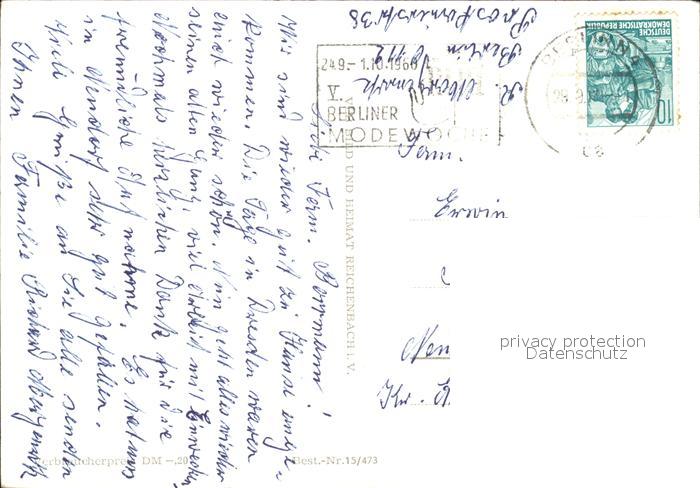 Liebe Fam. Borrmann!
Wir sind wieder gut zu Hause ange-
kommen. Die Tage in Dresden waren
einst wieder schön. Nun geht alles wieder
seinen alten Gang, viel Arbeit mit Einwecken
Nochmals herzlichen Dank für die
freundliche Aufnahme. Es hat uns
in Wendorf sehr gut gefallen.
Viele Grüße an Sie alle senden
Ihnen Familie Richard
R.
Berlin
24.9.–1.10.1960
V.
BERLINER
MODEWOCHE
BERLIN
DEUTSCHE
DEMOKRATISCHE REPUBLIK
10
Fam.
Erwin
BILD UND HEIMAT REICHENBACH i. V.
privacy protection
Datenschutz
Verbraucherpreis DM –,20
Best.-Nr. 15/473